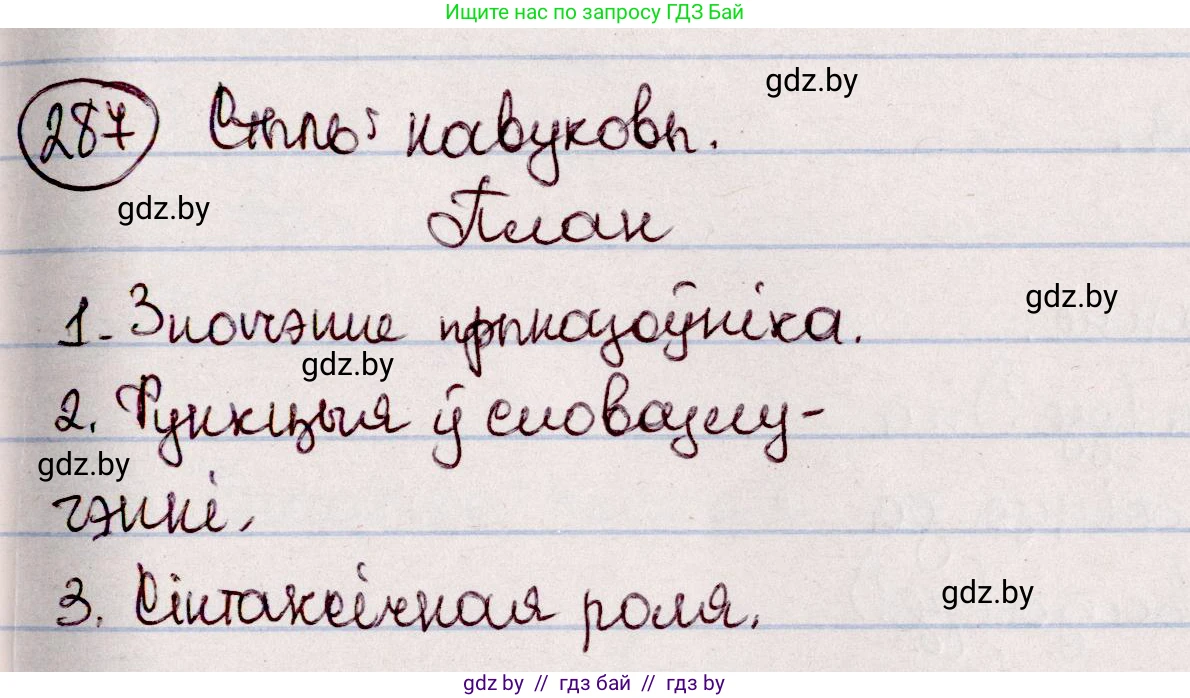 Ищите нас по запросу ГДЗ Бай
gdz.by
287 Стыль: навуковы.
gdz.by
План
gdz.by
1. Значэнне прыназоўніка.
gdz.by
2. Функцыя ў словазлу-
gdz.by
чэнні.
3. Сінтаксічная роля.
gdz.by
gdz.by // гдз бай // гдз by